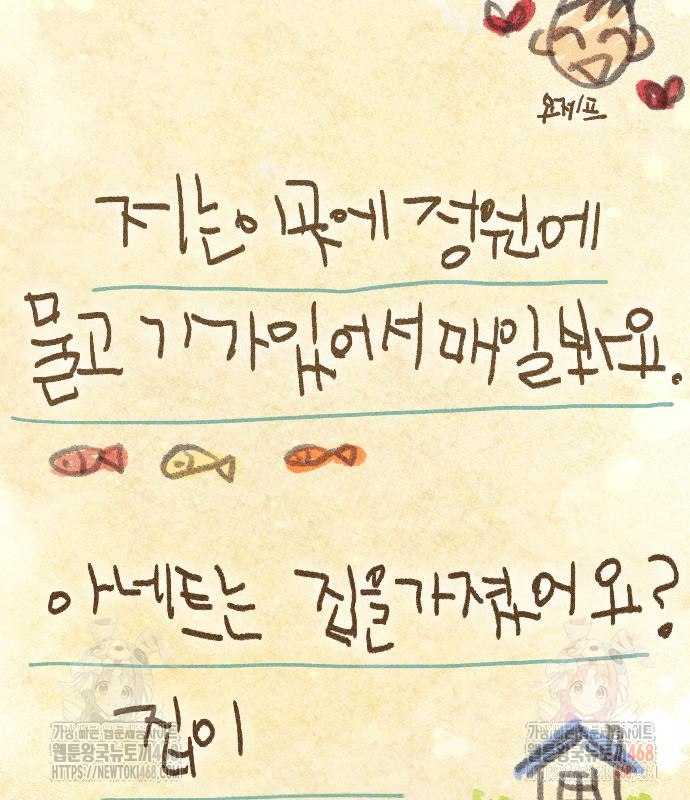 요제프
저는 이곳에 정원에
물고기가 있어서 매일 봐요.
아네트는 집을 가졌어요?
집이
가장 빠른 웹툰제공사이트
웹툰왕국뉴토끼468
HTTPS://NEWTOKI468.COM
가장 빠른 웹툰제공사이트
웹툰왕국뉴토끼468
HTTPS://NEWTOKI468.COM